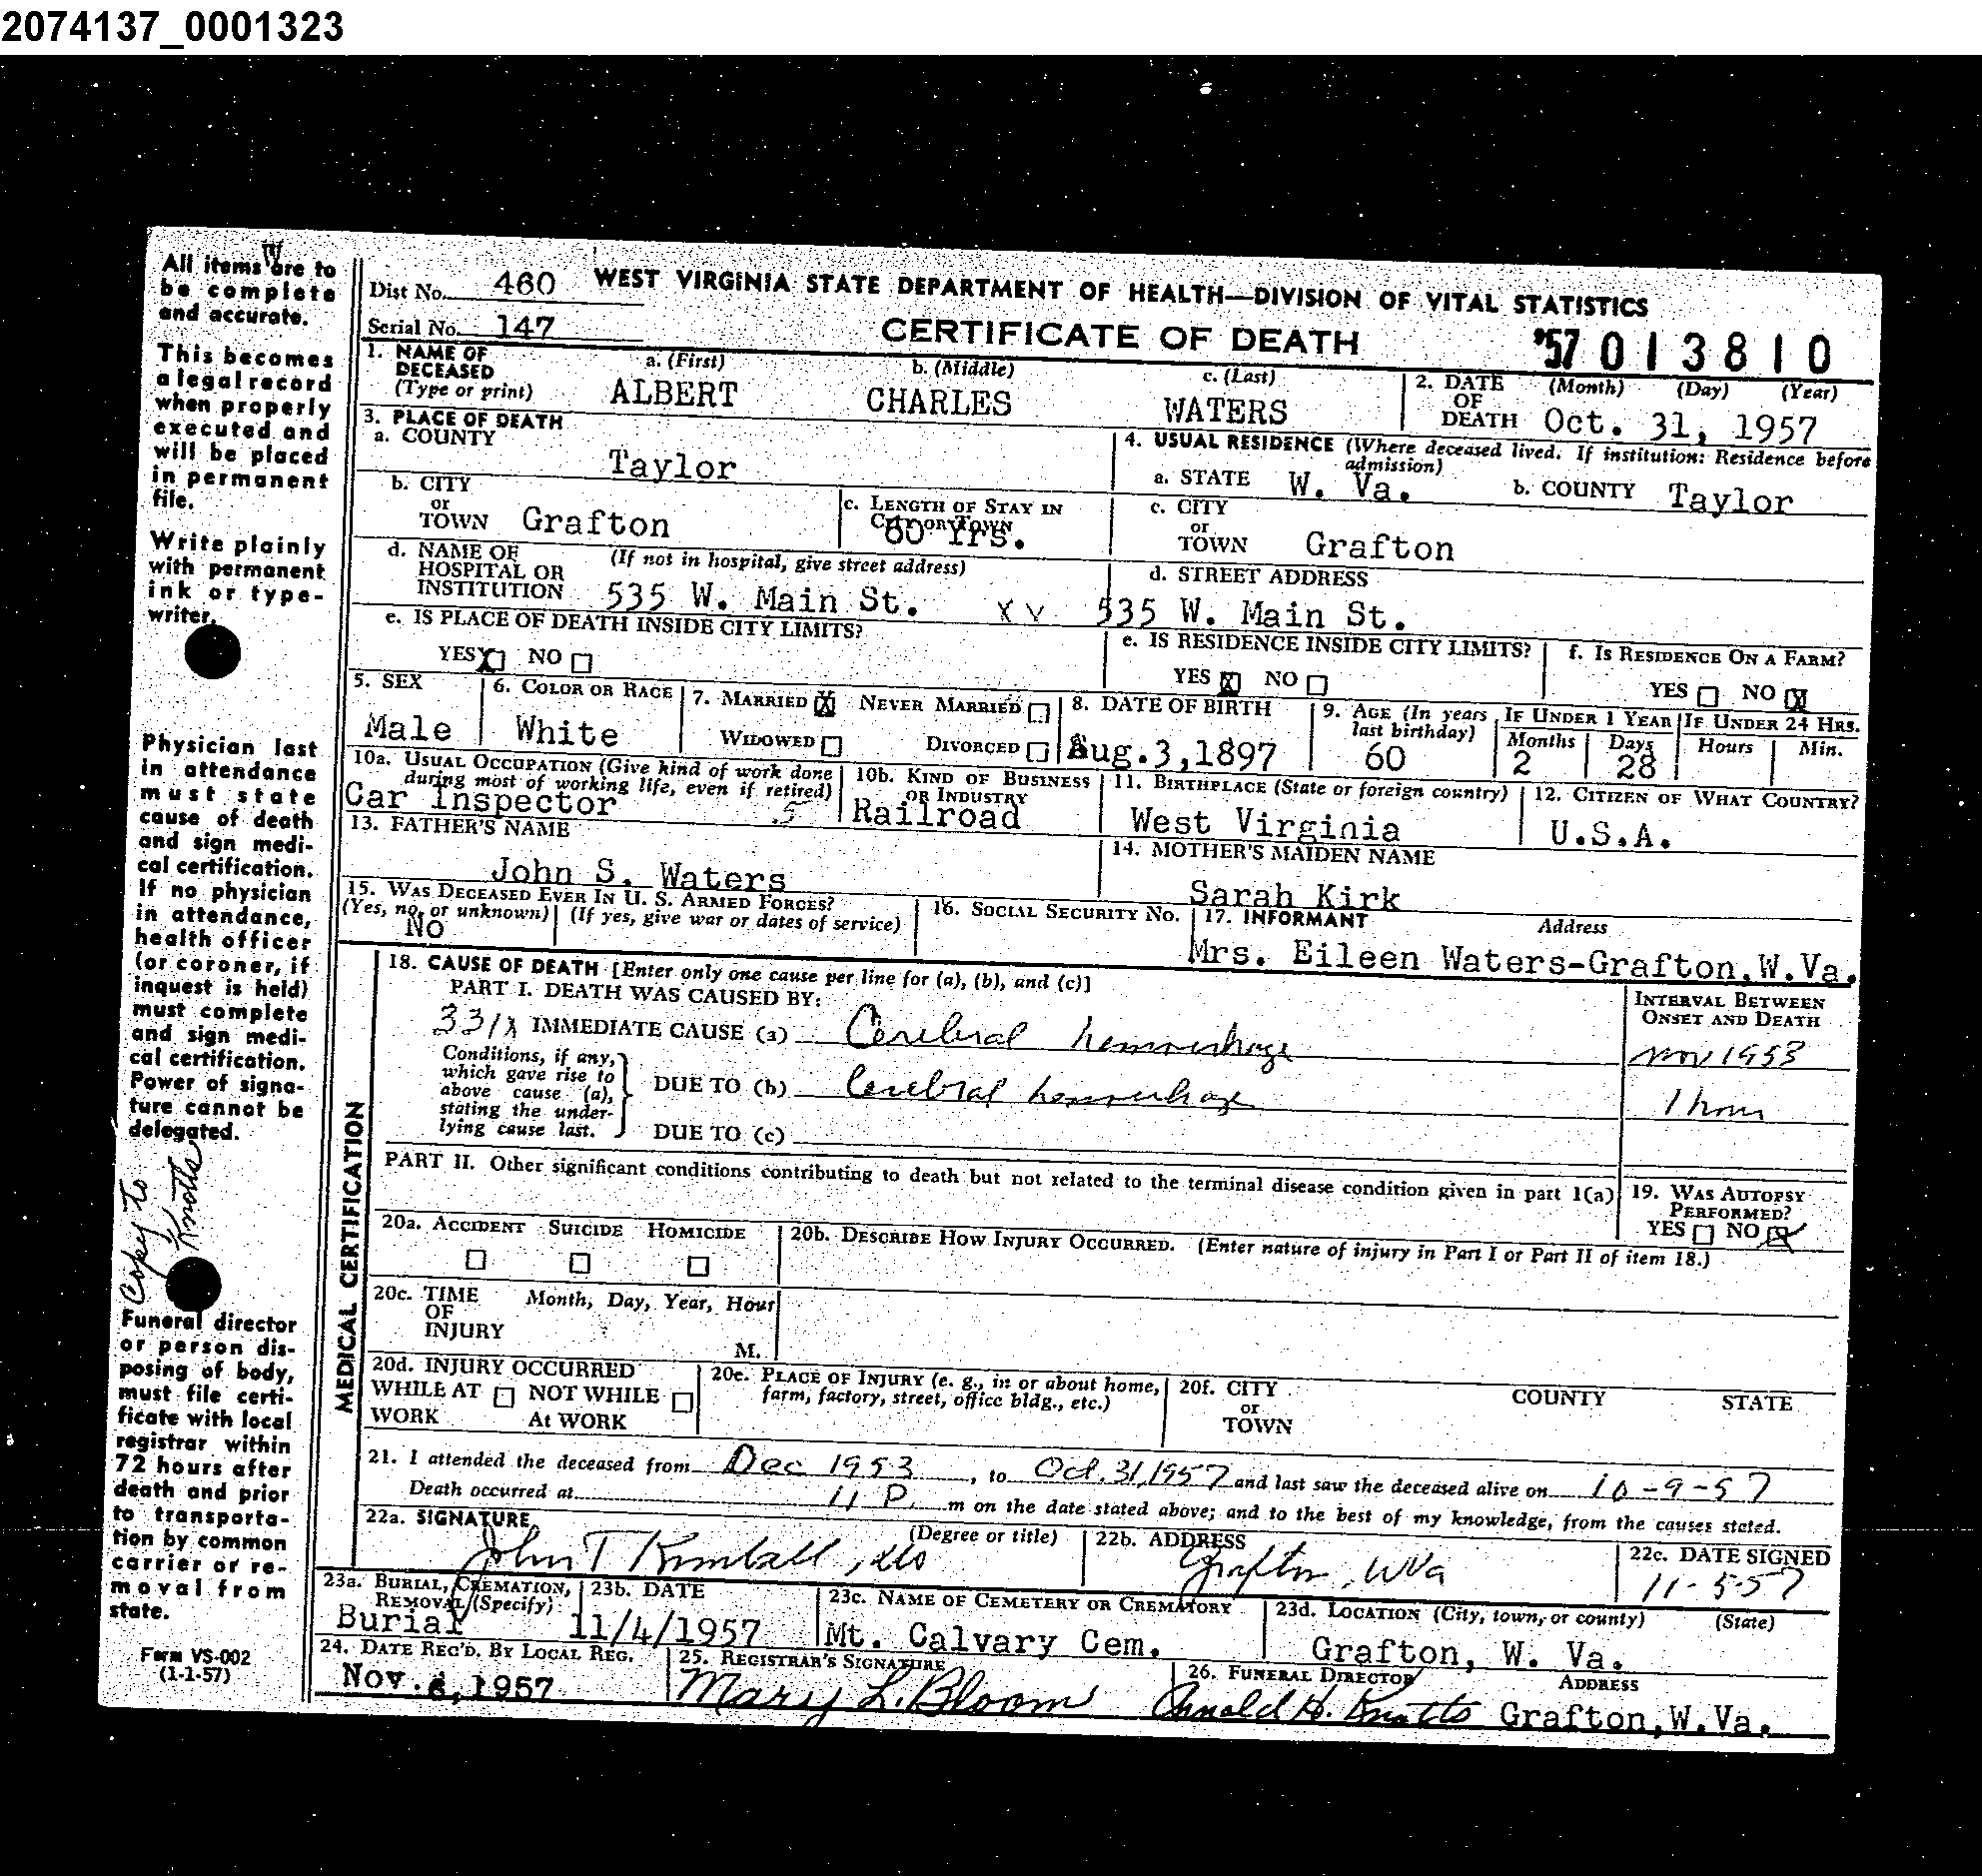 2074137_0001323
W
All items are to
be complete
and accurate.
This becomes
a legal record
when properly
executed and
will be placed
in permanent
file.
Write plainly
with permanent
ink or type-
writer.
Physician last
in attendance
must state
cause of death
and sign medi-
cal certification.
If no physician
in attendance,
health officer
(or coroner, if
inquest is held)
must complete
and sign medi-
cal certification.
Power of signa-
ture cannot be
delegated.
Copy to
Knotts
Funeral director
or person dis-
posing of body,
must file certi-
ficate with local
registrar within
72 hours after
death and prior
to transporta-
tion by common
carrier or re-
moval from
state.
Form VS-002
(1-1-57)
Dist No. 460 WEST VIRGINIA STATE DEPARTMENT OF HEALTH—DIVISION OF VITAL STATISTICS
Serial No. 147 CERTIFICATE OF DEATH '57 013810
1. NAME OF DECEASED (Type or print) a. (First) ALBERT b. (Middle) CHARLES c. (Last) WATERS
2. DATE OF DEATH (Month) (Day) (Year) Oct. 31, 1957
3. PLACE OF DEATH
a. COUNTY Taylor
4. USUAL RESIDENCE (Where deceased lived. If institution: Residence before admission)
a. STATE W. Va. b. COUNTY Taylor
b. CITY or TOWN Grafton c. LENGTH OF STAY IN CITY OR TOWN 60 Yrs.
c. CITY or TOWN Grafton
d. NAME OF HOSPITAL OR INSTITUTION (If not in hospital, give street address) 535 W. Main St. X V
d. STREET ADDRESS 535 W. Main St.
e. IS PLACE OF DEATH INSIDE CITY LIMITS?
YES X NO
e. IS RESIDENCE INSIDE CITY LIMITS? YES X NO
f. IS RESIDENCE ON A FARM? YES NO X
5. SEX Male 6. COLOR OR RACE White 7. MARRIED X NEVER MARRIED WIDOWED DIVORCED
8. DATE OF BIRTH Aug.3,1897 9. AGE (In years last birthday) 60 IF UNDER 1 YEAR Months 2 Days 28 IF UNDER 24 HRS. Hours Min.
10a. USUAL OCCUPATION (Give kind of work done during most of working life, even if retired) Car Inspector 5
10b. KIND OF BUSINESS OR INDUSTRY Railroad
11. BIRTHPLACE (State or foreign country) West Virginia
12. CITIZEN OF WHAT COUNTRY? U.S.A.
13. FATHER'S NAME John S. Waters
14. MOTHER'S MAIDEN NAME Sarah Kirk
15. WAS DECEASED EVER IN U. S. ARMED FORCES? (Yes, no, or unknown) (If yes, give war or dates of service) No
16. SOCIAL SECURITY NO.
17. INFORMANT Address Mrs. Eileen Waters-Grafton,W.Va.
MEDICAL CERTIFICATION
18. CAUSE OF DEATH [Enter only one cause per line for (a), (b), and (c)]
INTERVAL BETWEEN ONSET AND DEATH
PART I. DEATH WAS CAUSED BY:
331X IMMEDIATE CAUSE (a) Cerebral hemorrhage Nov 1953
Conditions, if any, which gave rise to above cause (a), stating the underlying cause last.
DUE TO (b) Cerebral hemorrhage 1 hour
DUE TO (c)
PART II. Other significant conditions contributing to death but not related to the terminal disease condition given in part 1(a)
19. WAS AUTOPSY PERFORMED? YES NO X
20a. ACCIDENT SUICIDE HOMICIDE
20b. DESCRIBE HOW INJURY OCCURRED. (Enter nature of injury in Part I or Part II of item 18.)
20c. TIME OF INJURY Month, Day, Year, Hour M.
20d. INJURY OCCURRED WHILE AT WORK NOT WHILE At WORK
20e. PLACE OF INJURY (e. g., in or about home, farm, factory, street, office bldg., etc.)
20f. CITY or TOWN COUNTY STATE
21. I attended the deceased from Dec 1953, to Oct. 31, 1957 and last saw the deceased alive on 10-9-57
Death occurred at 11 P. m on the date stated above; and to the best of my knowledge, from the causes stated.
22a. SIGNATURE (Degree or title) John T Kimball, MD
22b. ADDRESS Grafton, WVa
22c. DATE SIGNED 11-5-57
23a. BURIAL, CREMATION, REMOVAL (Specify) Burial
23b. DATE 11/4/1957
23c. NAME OF CEMETERY OR CREMATORY Mt. Calvary Cem.
23d. LOCATION (City, town, or county) (State) Grafton, W. Va.
24. DATE REC'D. BY LOCAL REG. Nov. 6,1957
25. REGISTRAR'S SIGNATURE Mary L. Bloom
26. FUNERAL DIRECTOR ADDRESS Arnold H. Knotts Grafton,W.Va.